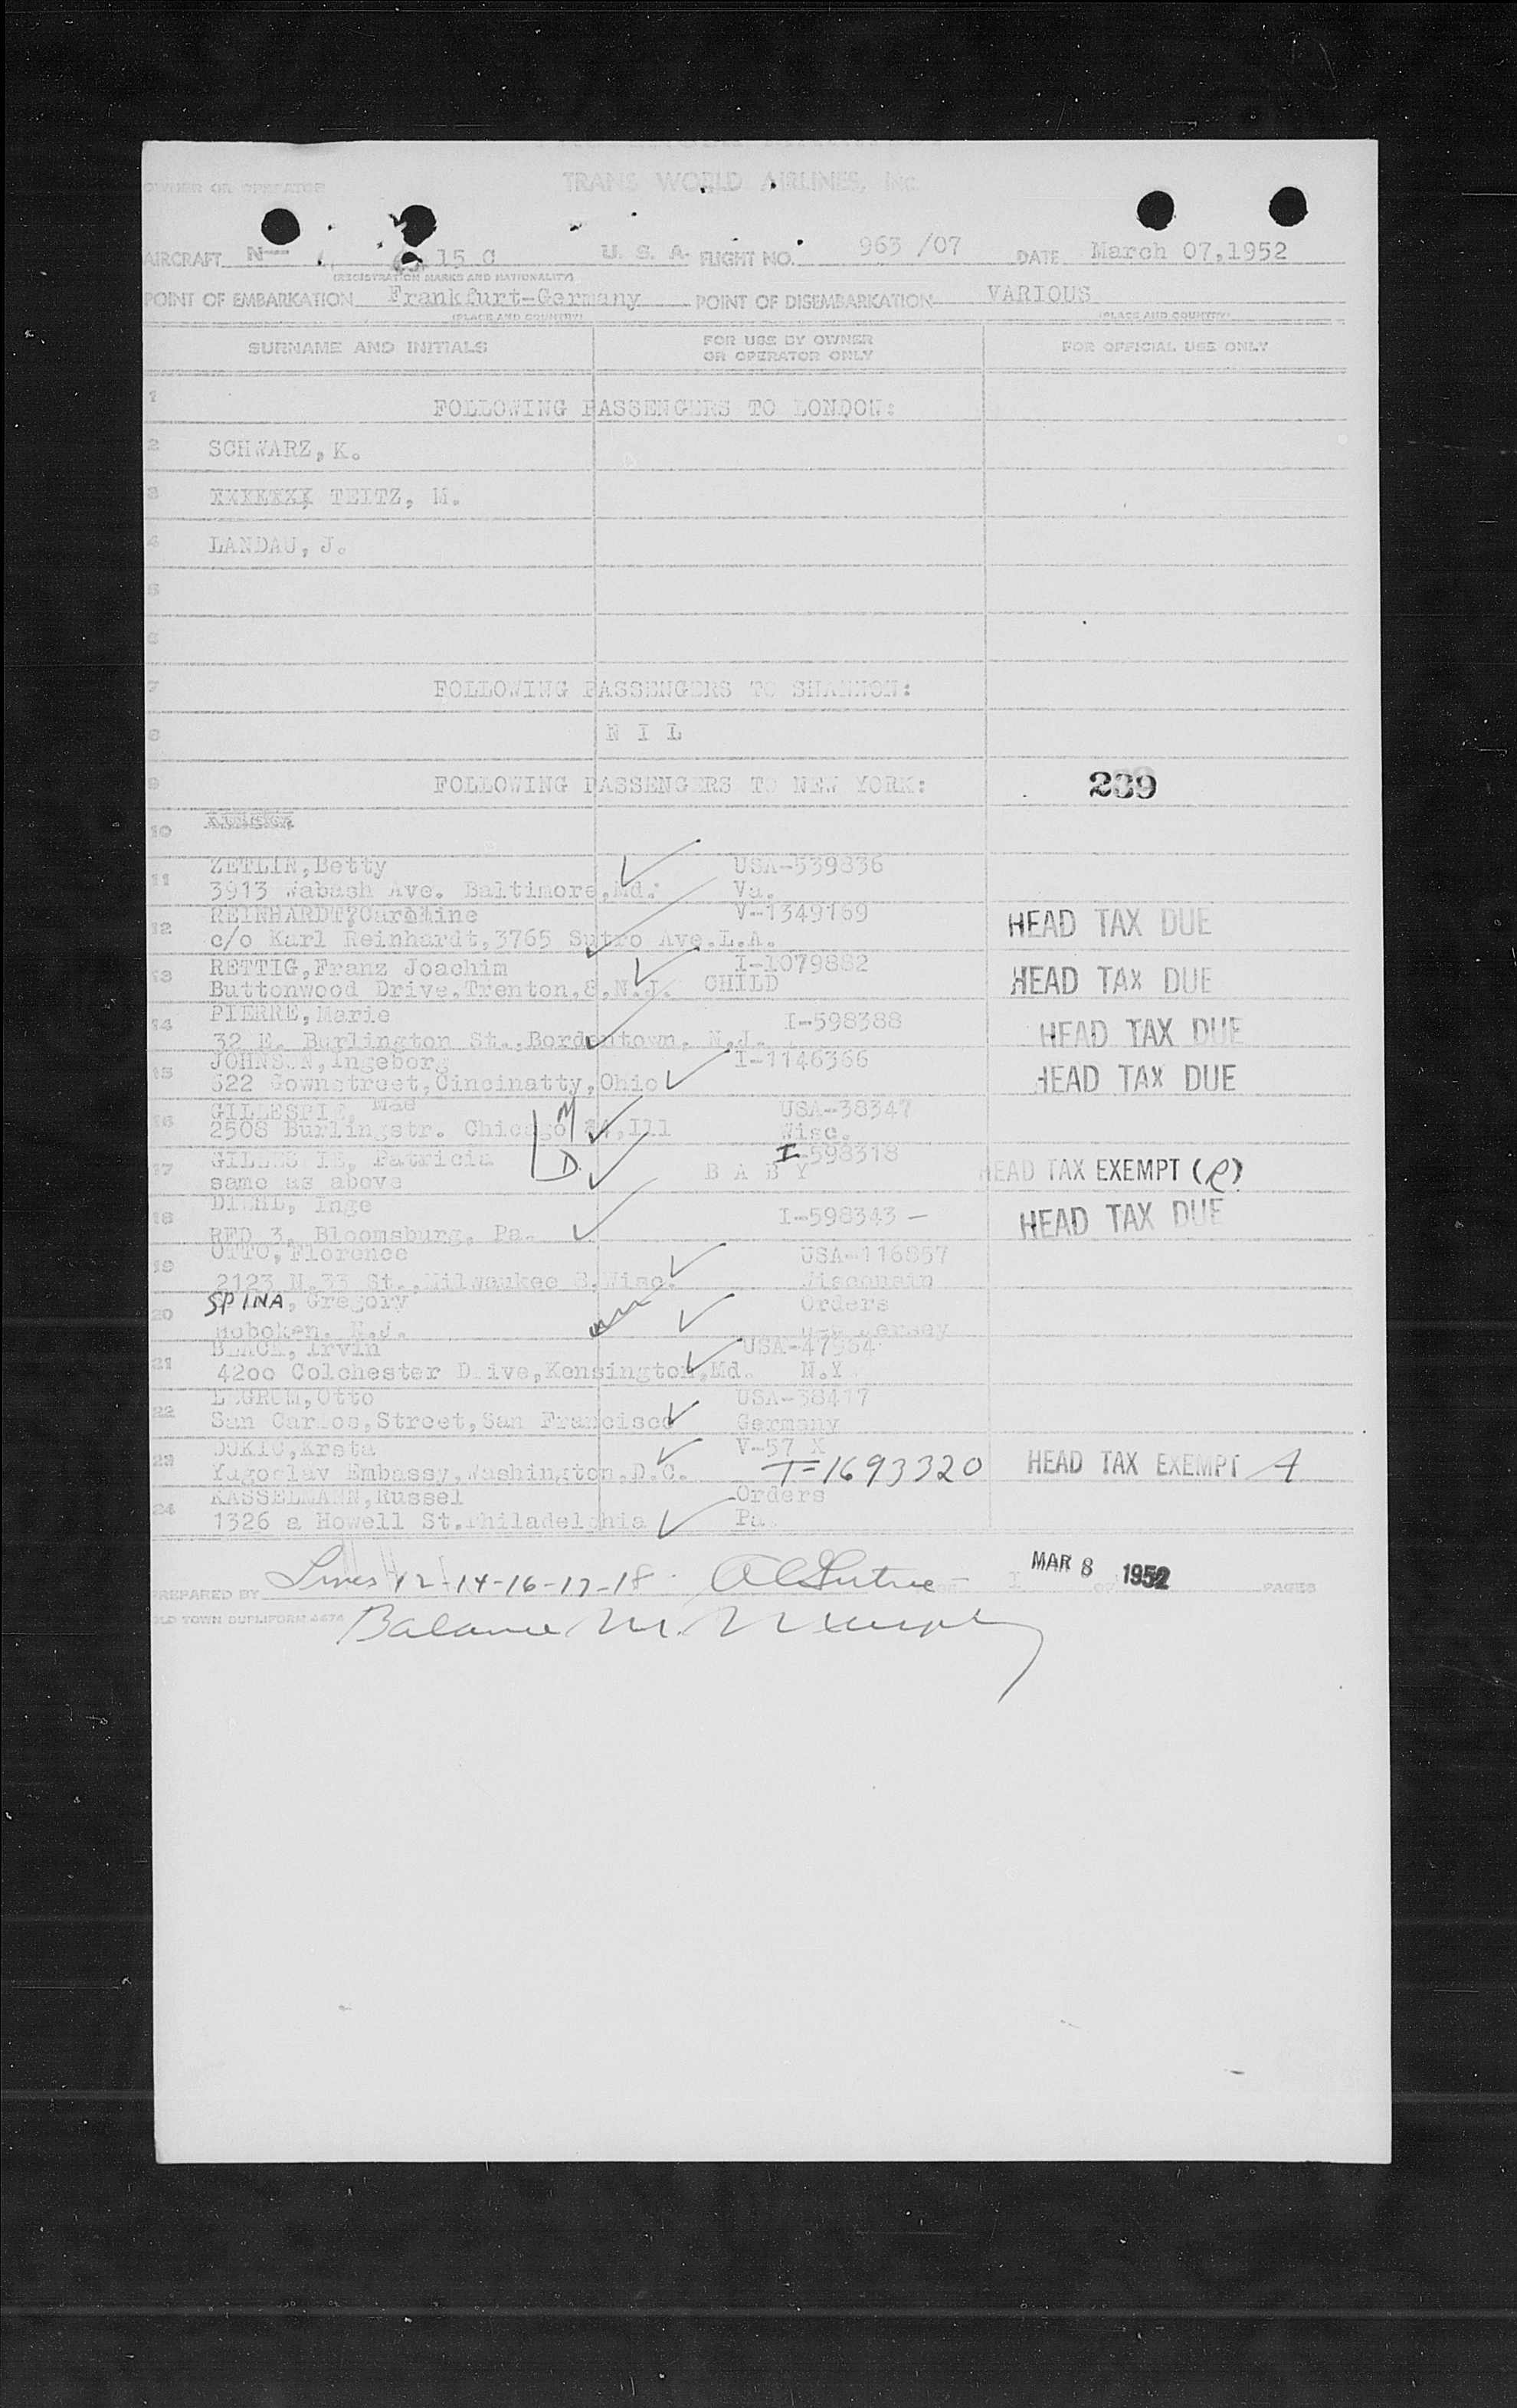 OWNER OR OPERATOR
TRANS WORLD AIRLINES, INC.
AIRCRAFT N 15 C U. S. A. FLIGHT NO. 963 /07 DATE March 07,1952
(REGISTRATION MARKS AND NATIONALITY)
POINT OF EMBARKATION Frankfurt-Germany POINT OF DISEMBARKATION VARIOUS
(PLACE AND COUNTRY) (PLACE AND COUNTRY)
SURNAME AND INITIALS FOR USE BY OWNER OR OPERATOR ONLY FOR OFFICIAL USE ONLY
1 FOLLOWING PASSENGERS TO LONDON:
2 SCHWARZ, K.
3 TEITZ, M.
4 LANDAU, J.
5
6
7 FOLLOWING PASSENGERS TO SHANNON:
8 N I L
9 FOLLOWING PASSENGERS TO NEW YORK: 239
10
11 ZETLIN,Betty USA-539836
3913 Wabash Ave. Baltimore,Md. Va.
12 REINHARDT,Caroline V-1349169 HEAD TAX DUE
c/o Karl Reinhardt,3765 Sutro Ave.L.A.
13 RETTIG,Franz Joachim I-1079882 HEAD TAX DUE
Buttonwood Drive,Trenton,8,N.J. CHILD
14 PIERRE,Marie I-598388 HEAD TAX DUE
32 E. Burlington St.,Bordentown, N.J.
15 JOHNSON,Ingeborg I-1146366 HEAD TAX DUE
622 Gownstreet,Cincinatty,Ohio
16 GILLESPIE, Mae M USA-38347
2508 Burlingstr. Chicago ,Ill Wisc.
17 GILLESPIE, Patricia D I-598318 HEAD TAX EXEMPT (R)
same as above B A B Y
18 DIEHL, Inge I-598343 — HEAD TAX DUE
RFD 3, Bloomsburg, Pa.
19 OTTO,Florence USA-116857
2123 N.33 St.,Milwaukee 8,Wisc. Wisconsin
20 SPINA, Gregory Orders
Hoboken, N.J. New Jersey
21 BLACK, Irvin USA-47564
4200 Colchester Drive,Kensington,Md. N.Y.
22 Otto USA-38417
San Carlos,Street,San Francisco Germany
23 DOKIC,Krsta V-57 X
Yugoslav Embassy,Washington,D.C. T-1693320 HEAD TAX EXEMPT A
24 KASSELMANN,Russel Orders
1326 a Howell St.Philadelphia Pa.
PREPARED BY Lines 12-14-16-17-18 1 OF PAGES MAR 8 1952
OLD TOWN DUPLIFORM 4474 Balance M.